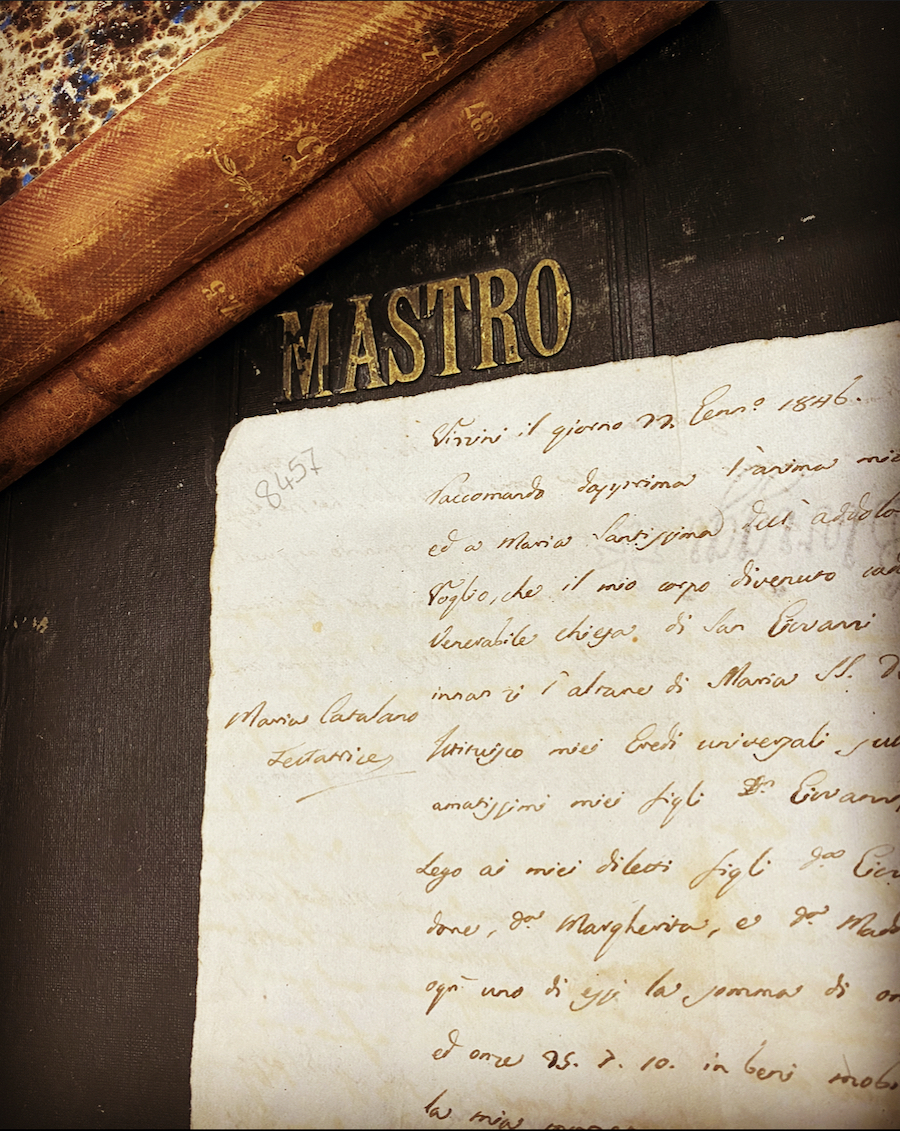 MASTRO
8457
Vizzini il giorno 22 Genn.o 1846.
Raccomando dapprima l'anima mia
ed a Maria Santissima dell' addolo
Voglio, che il mio corpo divenuto cad
Venerabile chiesa di San Giovanni
innanzi l'altare di Maria SS. D
Maria Catalano
Testatrice
Istituisco miei Eredi universali
amatissimi miei figli Dn Giovann
Lego ai miei diletti figli
done, Da Margherita, e Da Mad
ogn' uno di essi la somma di on
ed onze 25. 7. 10. in beni mobi
la mia